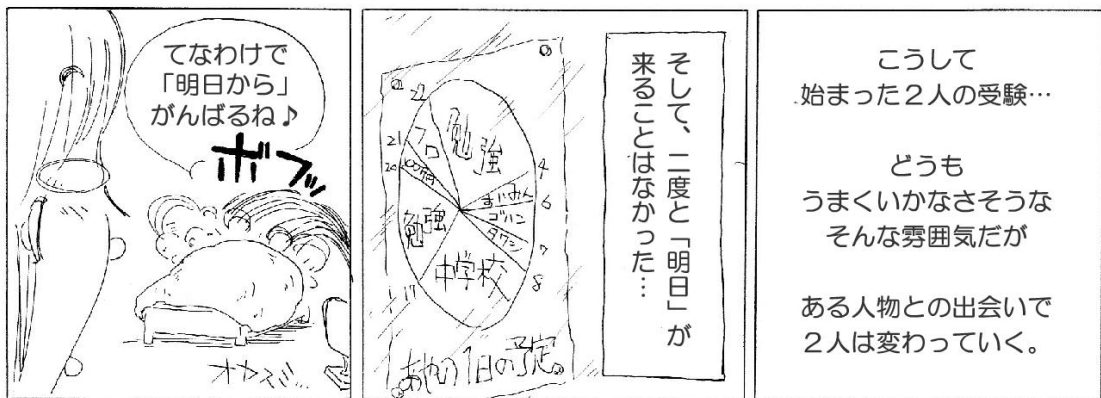 てなわけで
「明日から」
がんばるね♪
ボフッ
オヤスミ…
そして、二度と「明日」が
来ることはなかった…
22
21
20
フロ
勉強
4
すいみん
6
ゴハン
7
8
勉強
中学校
1日の予定
こうして
始まった２人の受験…
どうも
うまくいかなさそうな
そんな雰囲気だが
ある人物との出会いで
２人は変わっていく。